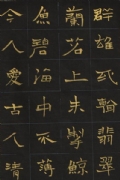 群雄或看翡翠
蘭苕上未掣鯨
魚碧海中不薄
今人愛古人清